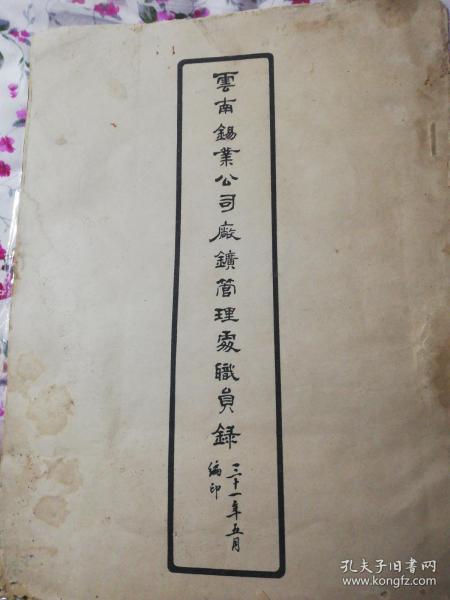 雲南錫業公司廠鑛管理處職員錄
三十一年五月
編印
孔夫子旧书网
www.kongfz.com